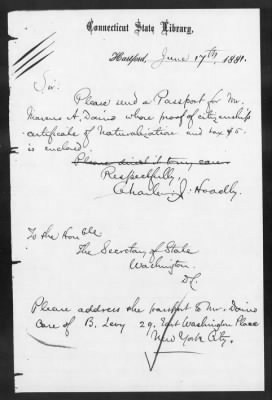 Connecticut State Library,
Hartford, June 17th, 1881.
Sir:
Please send a Passport for Mr.
Marcus A. Daino whose proof of citizenship
certificate of Naturalization and tax $5.
is enclosed.
Please direct it to my care
Respectfully,
Charles J. Hoadly.
To the Hon'ble
The Secretary of State
Washington
D.C.
Please address the passport to Mr. Daino
Care of B. Levy 29, East Washington Place
New York City.